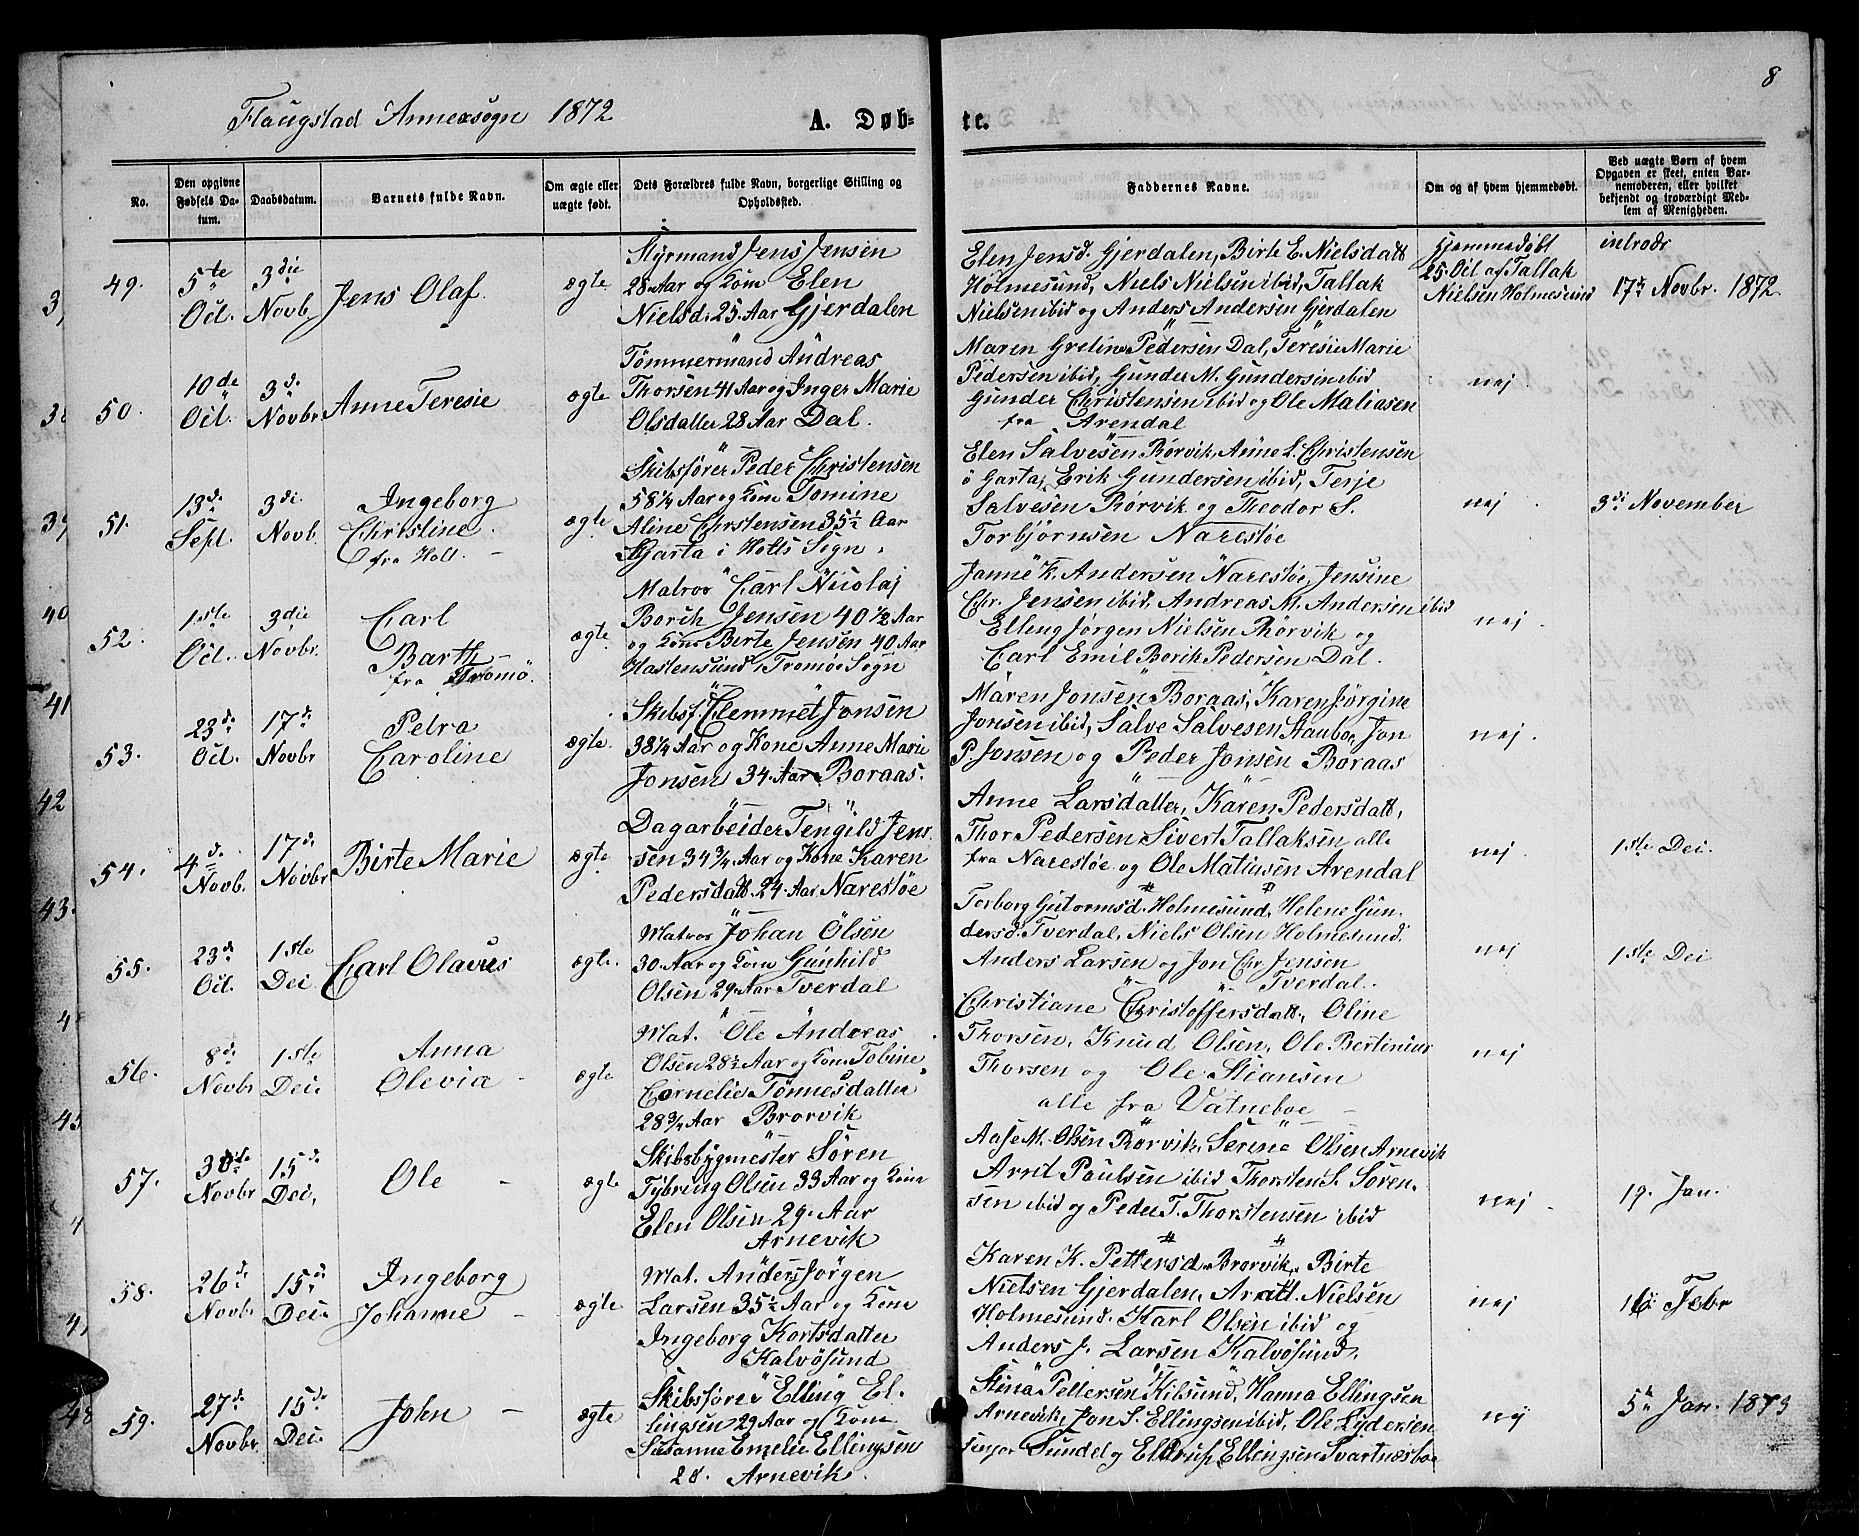 8
Flaugstad Annexsogn 1872
A. Døb-
te.
No.
Den opgivne Fødsels Da-tum.
Daabsdatum.
Barnets fulde Navn.
Om ægte eller uægte født.
Dets Forældres fulde Navn, borgerlige Stilling og Opholdssted.
Faddernes Navne.
Om og af hvem hjemmedøbt.
Ved uægte Børn af hvem Opgaven er skeet, enten Bar-nemoderen, eller hvilket bekjendt og troværdigt Med-lem af Menigheden.
49.
5te Oct.
3die Novb.
Jens Olaf.
ægte
Styrmand Jens Jensen
28 Aar og Kone Elen
Nielsd. 25. Aar Gjerdalen
Elen Jensd. Gjerdalen, Birte E. Nielsdatt
Holmesund, Niels Nielsen ibid, Tallak
Nielsen ibid og Anders Andersen Gjerdalen
Hjemmedøbt
25 Oct af Tallak
Nielsen Holmesund
introdr
17de Novbr. 1872
50.
10de Oct.
3di Novbr
Anne Teresie
ægte
Tømmermand Andreas
Thorsen 41 Aar og Inger Marie
Olsdatter 28 Aar Dal.
Maren Greline Pedersen Dal, Teresie Marie
Pedersen ibid, Gunder M. Gundersen ibid
Gunder Christensen ibid og Ole Matiasen
fra Arendal
nej
51.
13de Sept.
3di Novb.
Ingeborg
Christine.
fra Holt.
ægte
Skibsfører Peder Christensen
58 1/4 Aar og Kone Tomine
Aline Christensen 35 1/2 Aar
Garta i Holts Sogn.
Elen Salvesen Rørvik, Anne L. Christensen
ö Garta, Erik Gundersen ibid, Terje
Salvesen Rørvik og Theodor S.
Torbjørnsen Narestøe
nej
3di November
52.
1ste Oct.
3die Novbr.
Carl
Barth
fra Tromö.
ægte
Matros Carl Nicolaj
Borch Jensen 40 1/2 Aar
og Kone Birte Jensen 40 Aar
Hastensund i Tromöe Sogn
Janne K. Andersen Narestøe, Jensine
Chr. Jensen ibid, Andreas M. Andersen ibid
Elling Jørgen Nielsen Rörvik og
Carl Emil Borik Pedersen Dal.
nej
53.
23de Oct.
17de Novbr
Petra
Caroline
ægte.
Skibsf. Clemmet Jonsen
38 1/4 Aar og Kone Anne Marie
Jonsen 34. Aar Boraas.
Maren Jonsen Boraas, Karen Jörgine
Jonsen ibid, Salve Salvesen Staubo, Jon
P Jonsen og Peder Jonsen Boraas
nej.
54.
4de Novb.
17de Novbr
Birte Marie
ægte
Dagarbeider Tengild Jens
sen 34 3/4 Aar og Kone Karen
Pedersdatt. 24 Aar Narestøe
Anne Larsdatter, Karen Pedersdatt,
Thor Pedersen Sivert Tallaksen alle
fra Narestøe og Ole Matiasen Arendal
nej
1ste Dec.
55.
23de Oct.
1ste Dec
Carl Olavus
ægte.
Matros Johan Olsen
30. Aar og Kone Gunhild
Olsen 29 Aar Tverdal
Torborg Gutormsd. Holmesund, Helene Gun-
dersd. Tverdal, Niels Olsen Holmesund.
Anders Larsen og Jon Chr Jensen
Tverdal.
nej
1ste Dec
56.
8de Novbr
1ste Dec.
Anna
Olevia
ægte
Mat. Ole Andreas
Olsen 28 1/2 Aar og Kone Tobine
Cornelie Tønnesdatter
28 3/4 Aar Brorvik
Christiane Christoffersdatt, Oline
Thorsen, Knud Olsen, Ole Bertinius
Thorsen og Ole Stiansen
alle fra Vatneboe
nej
57.
30te Novbr
15de Dec.
Ole
ægte
Skibsbygmester Søren
Tybring Olsen 33 Aar og Kone
Elen Olsen 29. Aar
Arnevik
Aase M. Olsen Rørvik, Serine Olsen Arnevik
Arnt Paulsen ibid Thorsten S. Soren-
sen ibid og Peder T. Thorstensen ibid
nej
19. Jan.
58.
26de Novbr
15de Dec.
Ingeborg
Johanne
ægte
Mat. Anders Jörgen
Larsen 35 1/2 Aar og Kone
Ingeborg Kortsdatter
Kalvösund
Karen K. Pettersd. Brorvik, Birte
Nielsen Gjerdalen, Arntt. Nielsen
Holmesund. Karl Olsen ibid og
Anders J. Larsen Kalvösund.
nej
16de Febr
59.
27de Novbr.
15de Dec.
John
ægte
Skibsfører Elling El-
lingsen 29 Aar og Kone
Susanne Emelie Ellingsen
28. Arnevik.
Stina Pettersen Kilsund, Hanna Ellingsen
Arnevik, Jon S. Ellingsen ibid, Ole Lydersen
Sundel og Ellingsen Svartnesboe
nej
5te Jan. 1873
40
41
42
43.
45
48